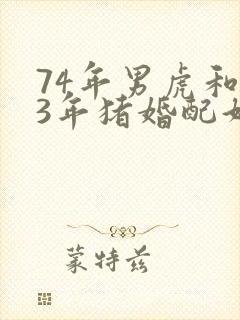 74年男虎和
3年猪婚配如
蒙特兹